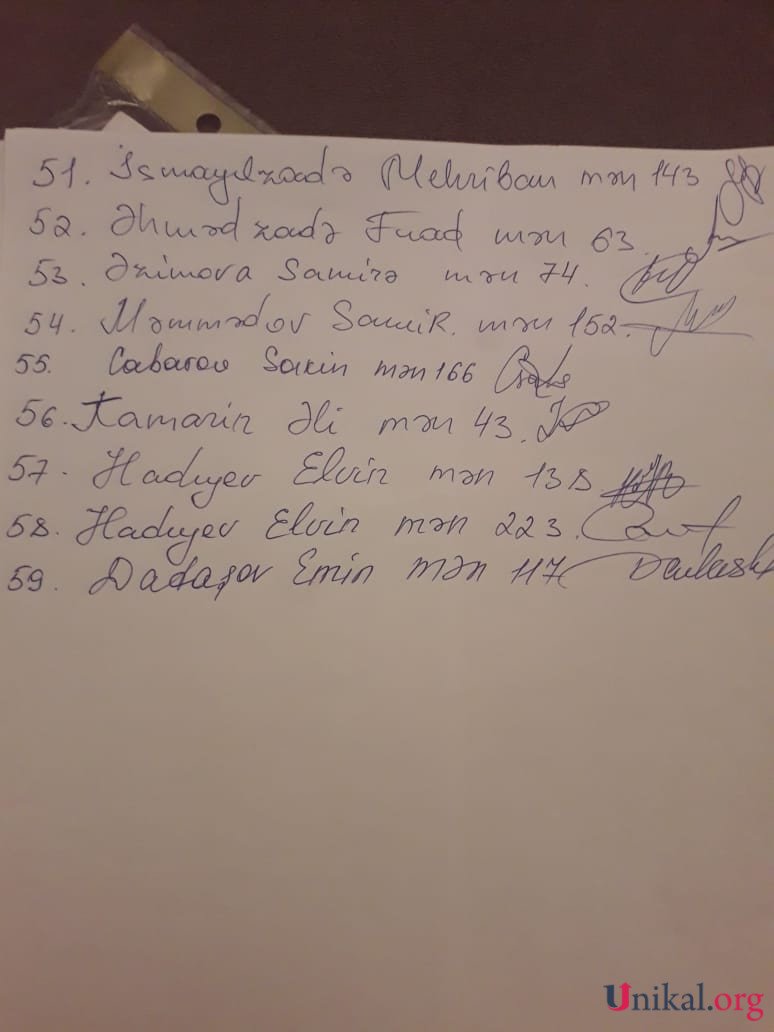 51. İsmayılzadə Mehriban mən 143
52. Əhmədzadə Fuad mən 63.
53. Əzimova Samirə mən 74.
54. Məmmədov Samir. mən 152.
55. Cabarov Sakin mən 166
56. Kamazin Əli mən 43.
57. Hadıyev Elvin mən 138
58. Hadıyev Elvin mən 223.
59. Dadaşov Emin mən 117
Unikal.org